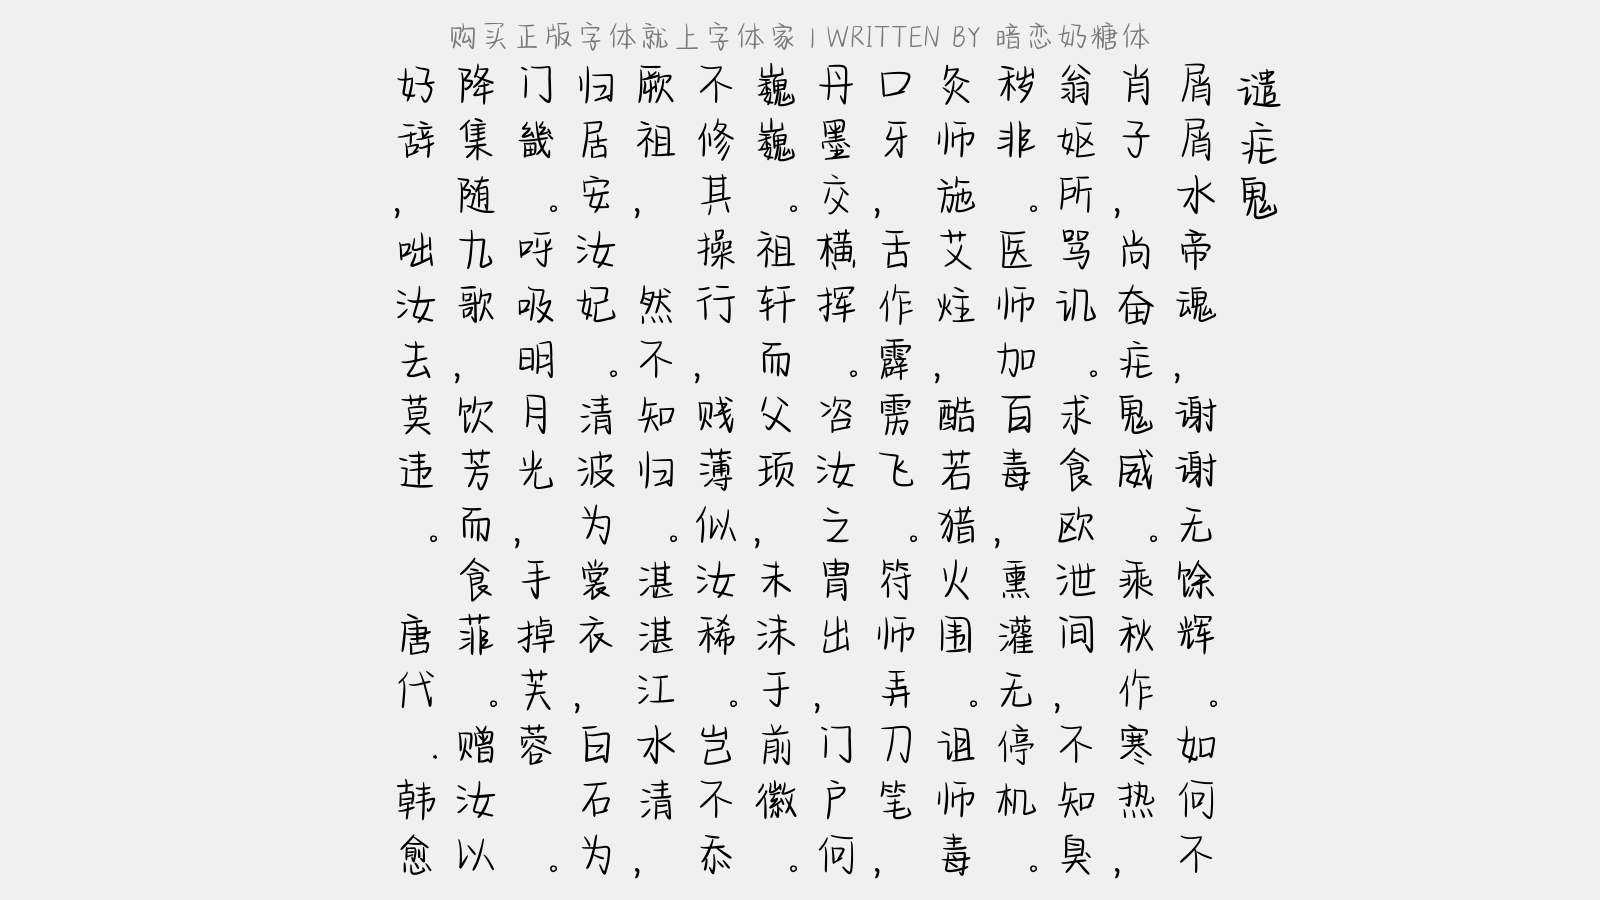 购买正版字体就上字体家 | WRITTEN BY 暗恋奶糖体
谴疟鬼
屑屑水帝魂，谢谢无馀辉。如何不
肖子，尚奋疟鬼威。乘秋作寒热，
翁妪所骂讥。求食欧泄间，不知臭
秽非。医师加百毒，熏灌无停机。
灸师施艾炷，酷若猎火围。诅师毒
口牙，舌作霹雳飞。符师弄刀笔，
丹墨交横挥。咨汝之胄出，门户何
巍巍。祖轩而父顼，未沫于前徽。
不修其操行，贱薄似汝稀。岂不忝
厥祖， 然不知归。湛湛江水清，
归居安汝妃。清波为裳衣，白石为
门畿。呼吸明月光，手掉芙蓉 。
降集随九歌，饮芳而食菲。赠汝以
好辞，咄汝去莫违。 唐代.韩愈